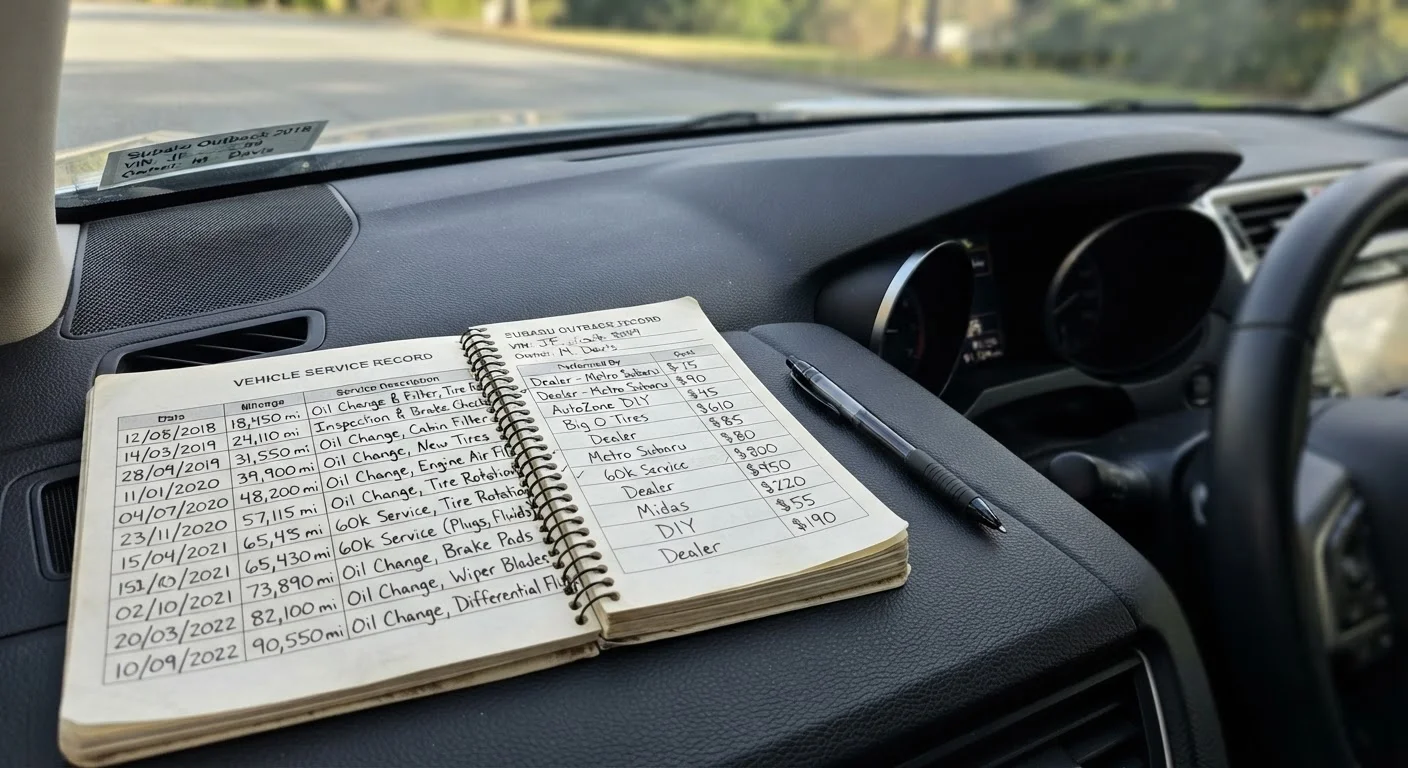 Subaru Outback 2018
VIN: JF
VEHICLE SERVICE RECORD
Date Mileage Service Description
12/08/2018 18,450 mi Oil Change & Filter, Tire
14/03/2019 24,110 mi Inspection & Brake Check
28/09/2019 31,550 mi Oil Change, Cabin Filter
11/01/2020 39,900 mi Oil Change, New Tires
04/07/2020 48,200 mi Oil Change, Engine Air
23/11/2020 57,115 mi Oil Change, Tire Rotation
15/04/2021 65,45 mi 60k Service, Tire Rotation
65,430 mi 60k Service (Plugs, Fluids)
02/10/2021 73,890 mi Oil Change, Brake Pads
20/03/2022 82,100 mi Oil Change, Wiper Blades
10/09/2022 90,550 mi Oil Change, Differential
SUBARU OUTBACK RECORD
VIN: JF
Owner: M. Davis
Performed By Cost
Dealer - Metro Subaru $75
Dealer - Metro Subaru $90
AutoZone DIY $45
Big O Tires $610
Dealer $85
Metro Subaru $80
60k Service $800
Dealer $450
Midas $220
DIY $55
Dealer $190